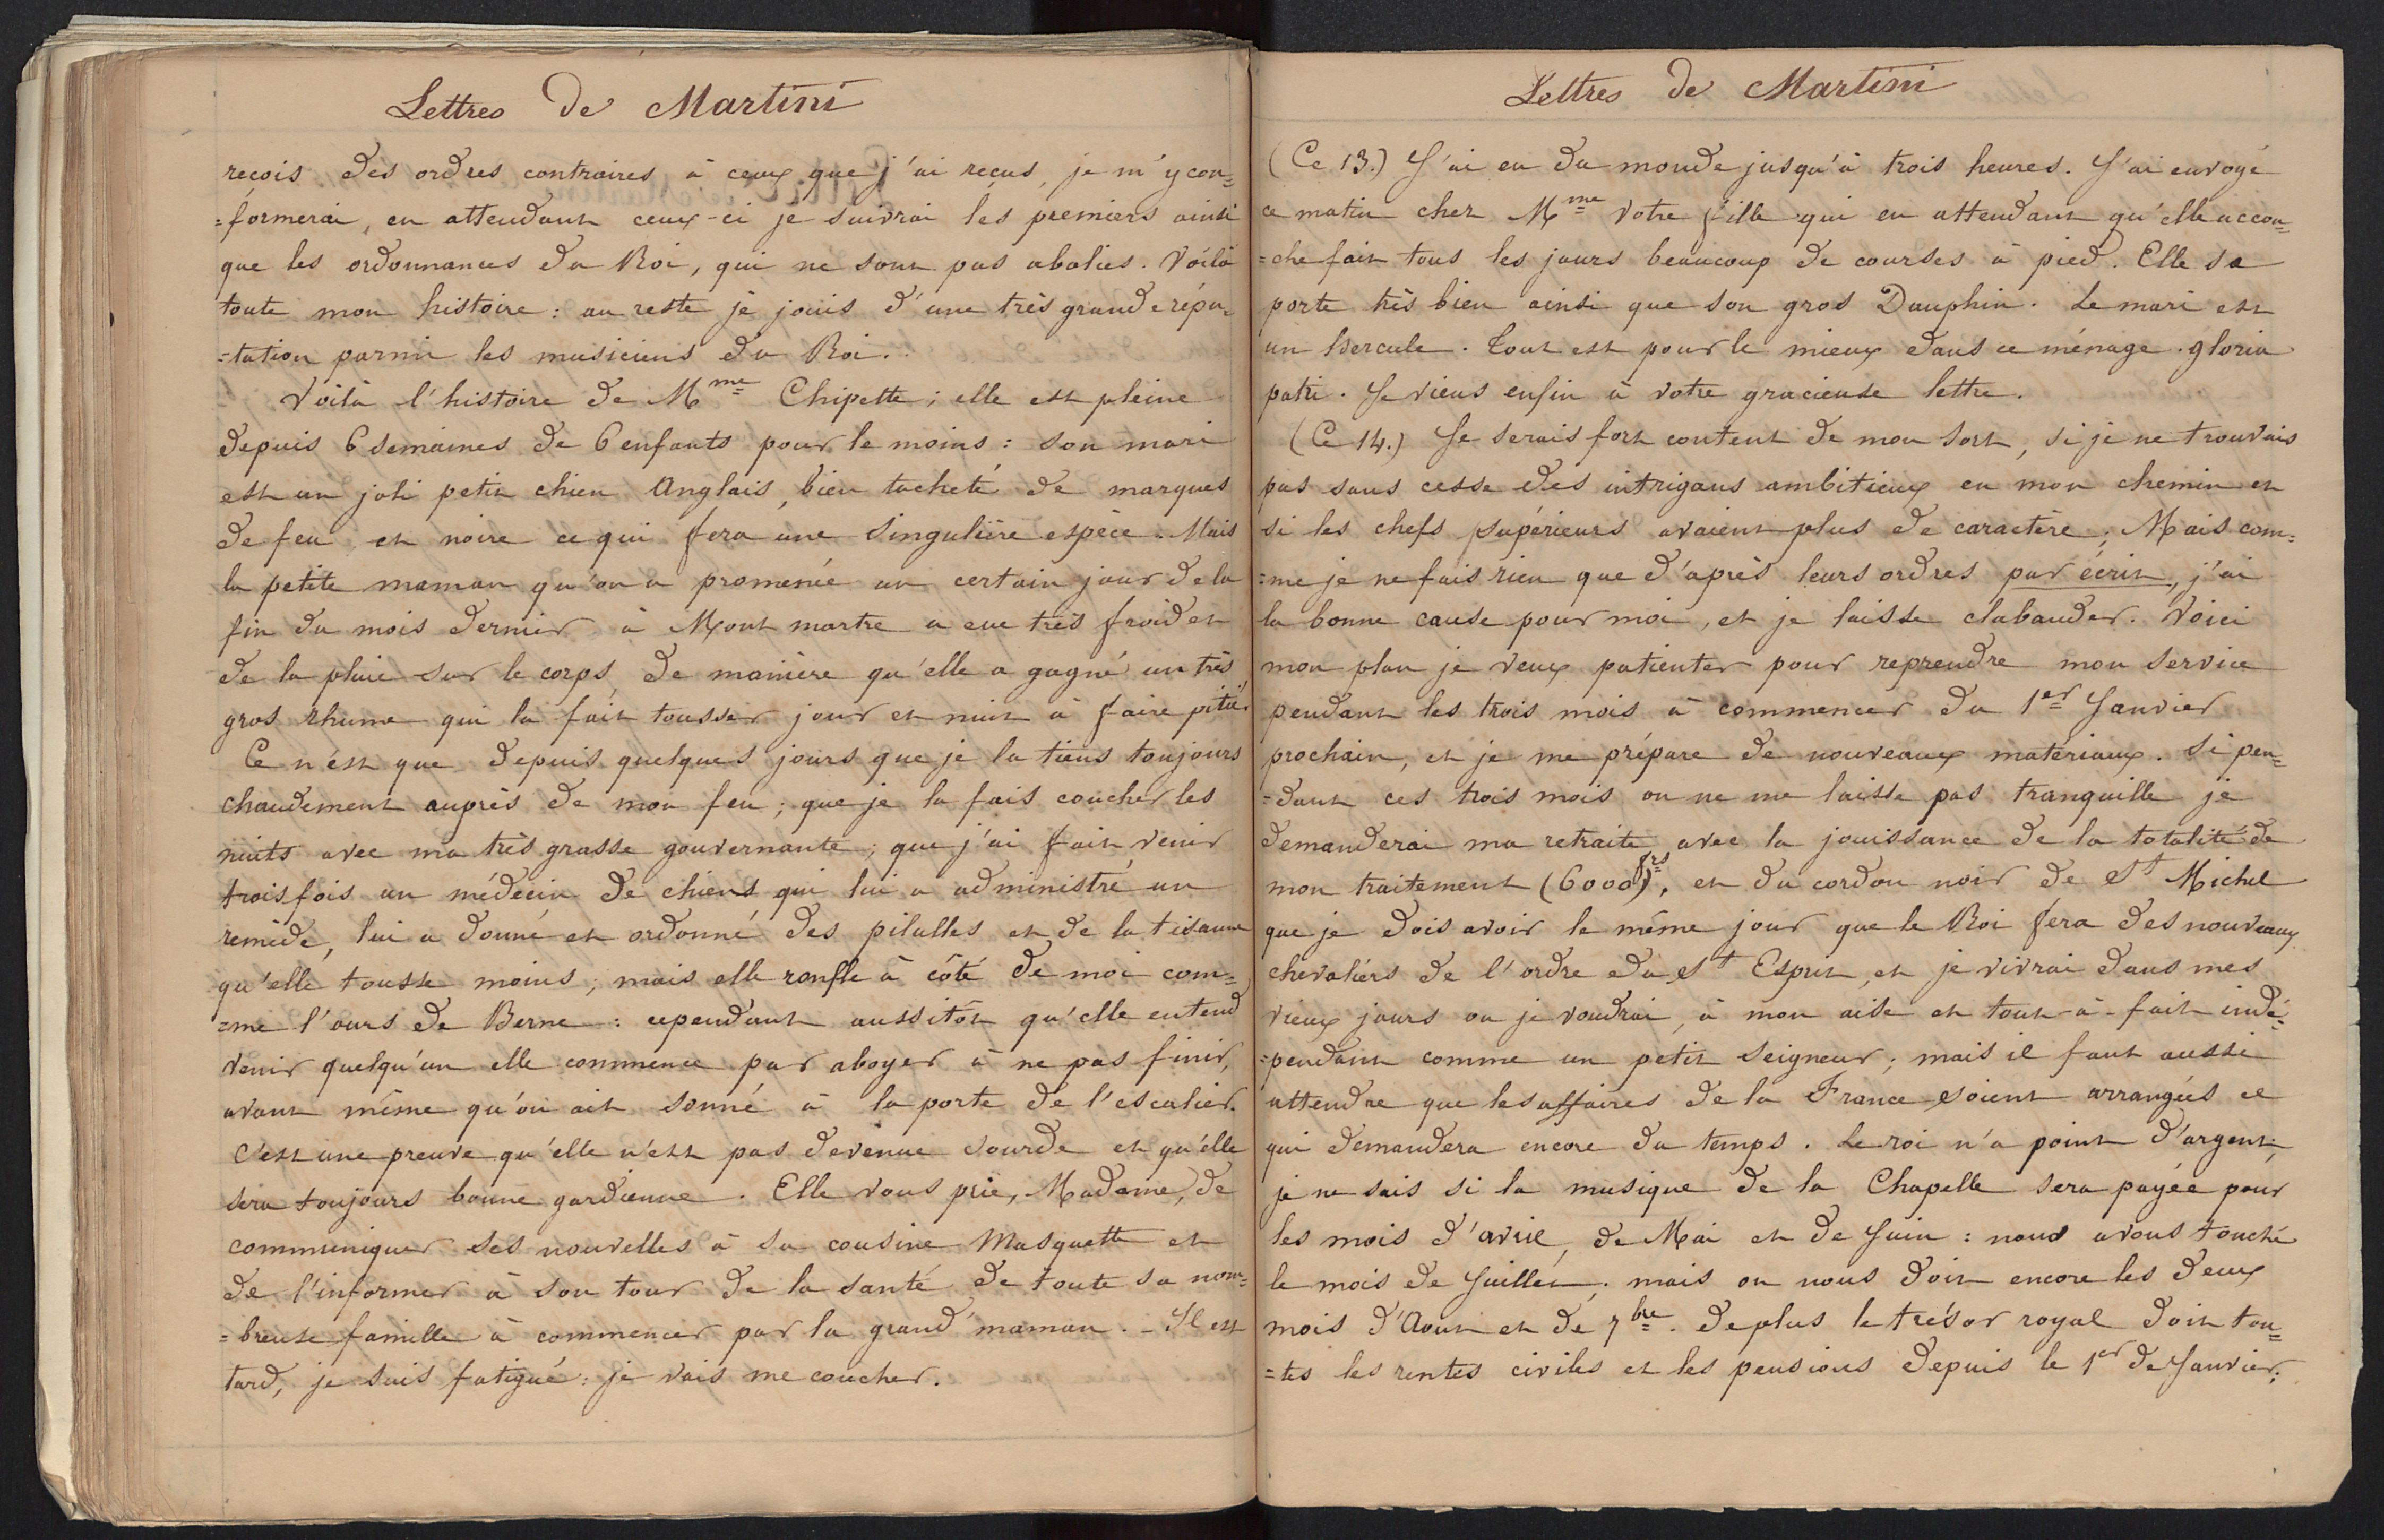 Lettres de Martini
reçois des ordres contraires à ceux que j'ai reçus, je m'y con=
=formerai, en attendant ceux-ci je suivrai les premiers ainsi
que les ordonnances du Roi, qui ne sont pas abolies. Voilà
toute mon histoire : au reste je jouis d'une très grande répu=
=tation parmi les musiciens du Roi.
Voilà l'histoire de Mme Chipette ; elle est pleine
depuis 6 semaines de 6 enfants pour le moins : son mari
est un joli petit chien Anglais, bien tacheté de marques
de feu et noire ce qui fera une singulière espèce. Mais
la petite maman qu'on a promenée un certain jour de la
fin du mois dernier à Mont martre a eue très froid et
de la pluie sur le corps, de manière qu'elle a gagné un très
gros rhume qui la fait tousser jour et nuit à faire pitié.
Ce n'est que depuis quelques jours que je la tiens toujours
chaudement auprès de mon feu ; que je la fais coucher les
nuits avec ma très grasse gouvernante ; que j'ai fait venir
trois fois un médecin de chiens qui lui a administré un
remède, lui a donné et ordonné des pilulles et de la tisanne
qu'elle tousse moins ; mais elle ronfle à côté de moi com=
=me l'ours de Berne : cependant aussitôt qu'elle entend
venir quelqu'un elle commence par aboyer à ne pas finir,
avant même qu'on ait sonné à la porte de l'escalier.
c'est une preuve qu'elle n'est pas devenue sourde et qu'elle
sera toujours bonne gardienne. Elle vous prie, Madame, de
communiquer ses nouvelles à sa cousine Masquette et
de l'informer à son tour de la santé de toute sa nom=
=breuse famille à commencer par la grand'maman. - Il est
tard, je suis fatigué : je vais me coucher.
Lettres de Martini
(Ce 13.) J'ai eu du monde jusqu'à trois heures. J'ai envoyé
ce matin chez Mme votre fille qui en attendant qu'elle accou=
=che fait tous les jours beaucoup de courses à pied. Elle se
porte très bien ainsi que son gros Dauphin. Le mari est
un hercule. Tout est pour le mieux dans ce ménage. gloria
patri. Je viens enfin à votre gracieuse lettre.
(Ce 14.) Je serais fort content de mon sort, si je ne trouvais
pas sans cesse des intrigans ambitieux en mon chemin et
si les chefs supérieurs avaient plus de caractère ; Mais com=
=me je ne fais rien que d'après leurs ordres par écrit, j'ai
la bonne cause pour moi, et je laisse clabauder. Voici
mon plan je veux patienter pour reprendre mon service
pendant les trois mois à commencer du 1er Janvier
prochain, et je me prépare de nouveaux matériaux. Si pen=
=dant ces trois mois on ne me laisse pas tranquille je
demanderai ma retraite avec la jouissance de la totalité de
mon traitement (6000frs), et du cordon noir de St Michel
que je dois avoir le même jour que le Roi fera des nouveaux
chevaliers de l'ordre du St Esprit, et je vivrai dans mes
vieux jours ou je voudrai, à mon aise et tout-à-fait indé=
=pendant comme un petit seigneur ; mais il faut aussi
attendre que les affaires de la France soient arrangées ce
qui demandera encore du temps. Le roi n'a point d'argent ;
je ne sais si la musique de la Chapelle sera payée pour
les mois d'avril, de Mai et de Juin : nous avons touché
le mois de Juillet ; mais on nous doit encore les deux
mois d'Aout et de 7bre. De plus le trésor royal doit tou=
=tes les rentes civiles et les pensions depuis le 1er de Janvier ;